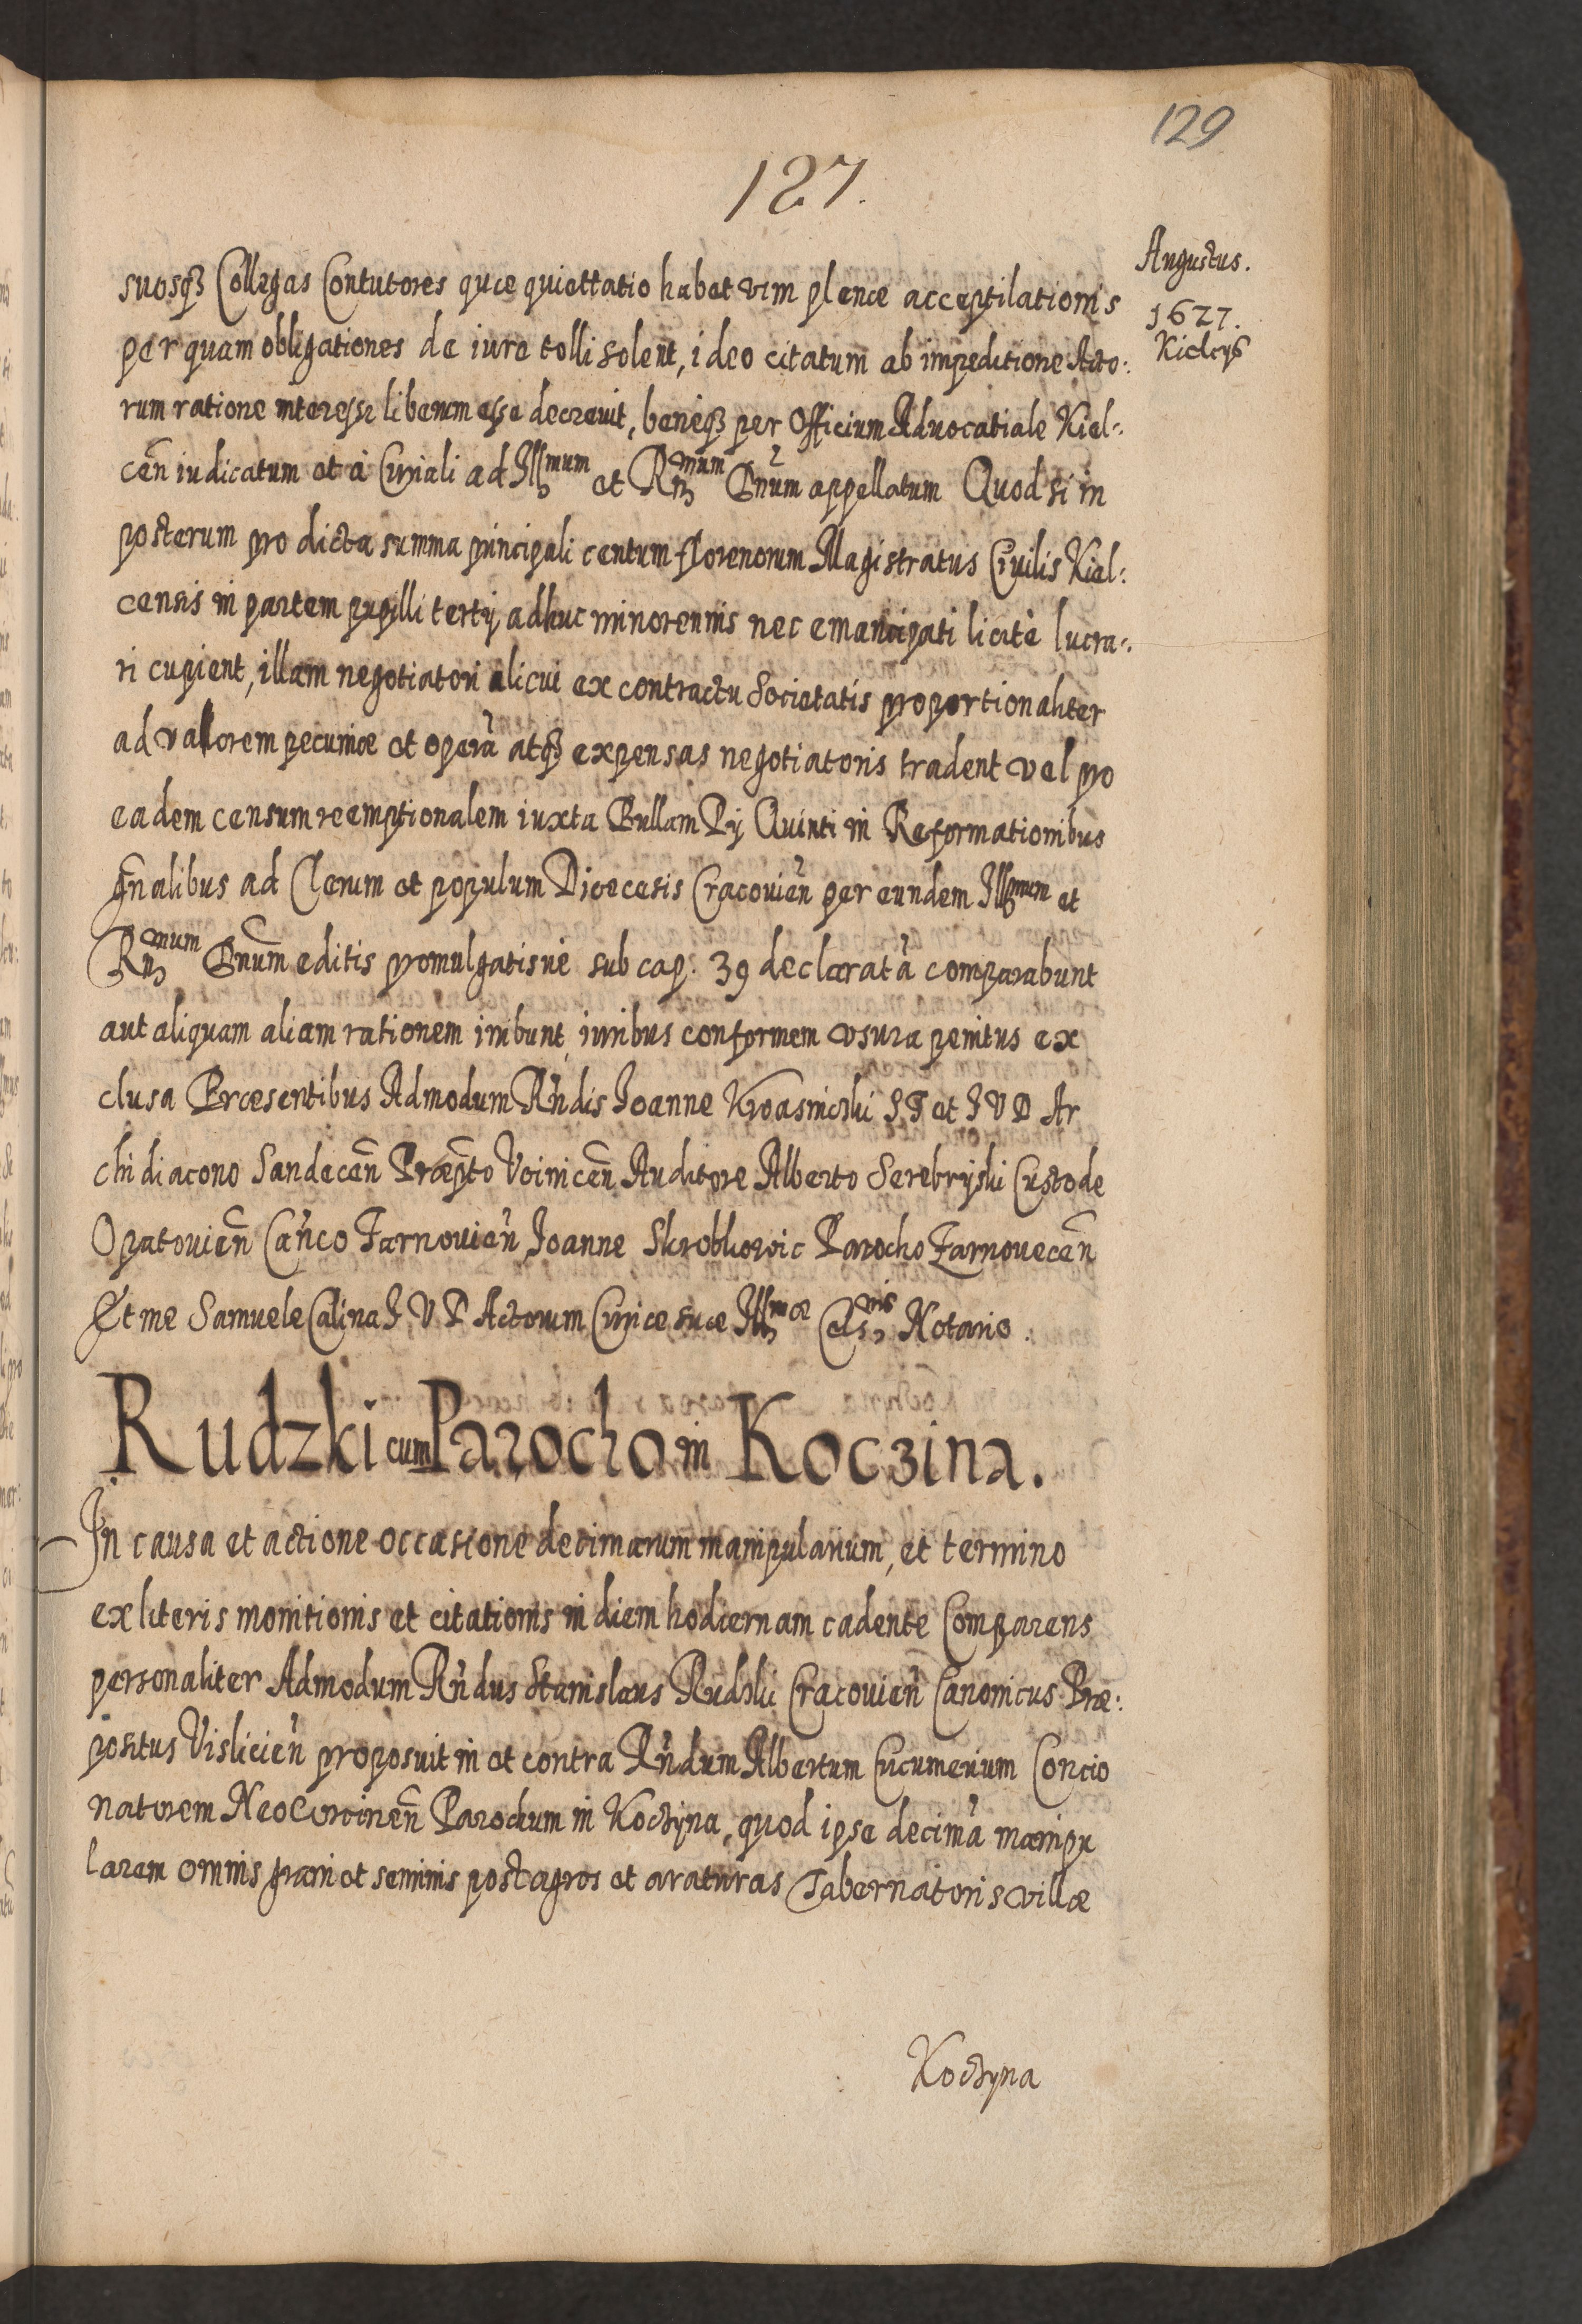 129
127.
Augustus.
1627.
Kielcys
suosq₃ Collegas Contutores quæ quiettatio habet vim plenæ acceptilationis
per quam obligationes de iure tolli solent, ideo citatum ab impeditione Acto:
rum ratione interesse liberum esse decrevit, beneq₃ per Officium Advocatiale Kiel:
cen̄ iudicatum et à Civiali ad Illmum et Rmum Dnūm appellatum Quod si in
posterum pro dicta summa principali centum florenorum Magistratus Civilis Kiel:
censis in partem pupilli tertij adhuc minorennis nec emancipati licitè lucra:
ri cupient, illam negotiatori alicui ex contractu Societatis proportionaliter
ad valorem pecuniæ et operā atq₃ expensas negotiatoris tradent vel pro
eadem censum reemptionalem iuxta Bullam Pij Quinti in Reformationibus
gnālibus ad Clerum et populum Diœcesis Cracovien̄ per eundem Illmum et
Rmum Dnūm editis promulgatisvè sub cap: 39 declaratā comparabunt
aut aliquam aliam rationem inibunt, iuribus conformem usura penitus ex
clusa Præsentibus Admodum Rn̄dis Joanne Kroasnicki S T et J V D Ar
chidiacono Sandecen̄ Præpto Voinicen̄ Auditore Alberto Serebryski Custode
Opatovien̄ Can̄co Tarnovien̄ Joanne Skrobkowic Parocho Zarnovecen̄
Et me Samuele Calina J V D Actorum Curiæ suæ Illmæ Celsnis Notario.
Rudzki cum Parocho in Koczina.
In causa et actione occasione decimarum manipularium, et termino
ex literis monitionis et citationis in diem hodiernam cadente Comparens
personaliter Admodum Rn̄dus Stanislaus Rudzki Cracovien̄ Canonicus Præ:
positus Vislicien̄ proposuit in et contra Rn̄dum Albertum Cucumerium Concio
natorem Neocorcinen̄ Parochum in Koczyna, quod ipse decimā manipu
larem omnis grani et seminis post agros et araturas Tabernatoris villæ
Koczyna